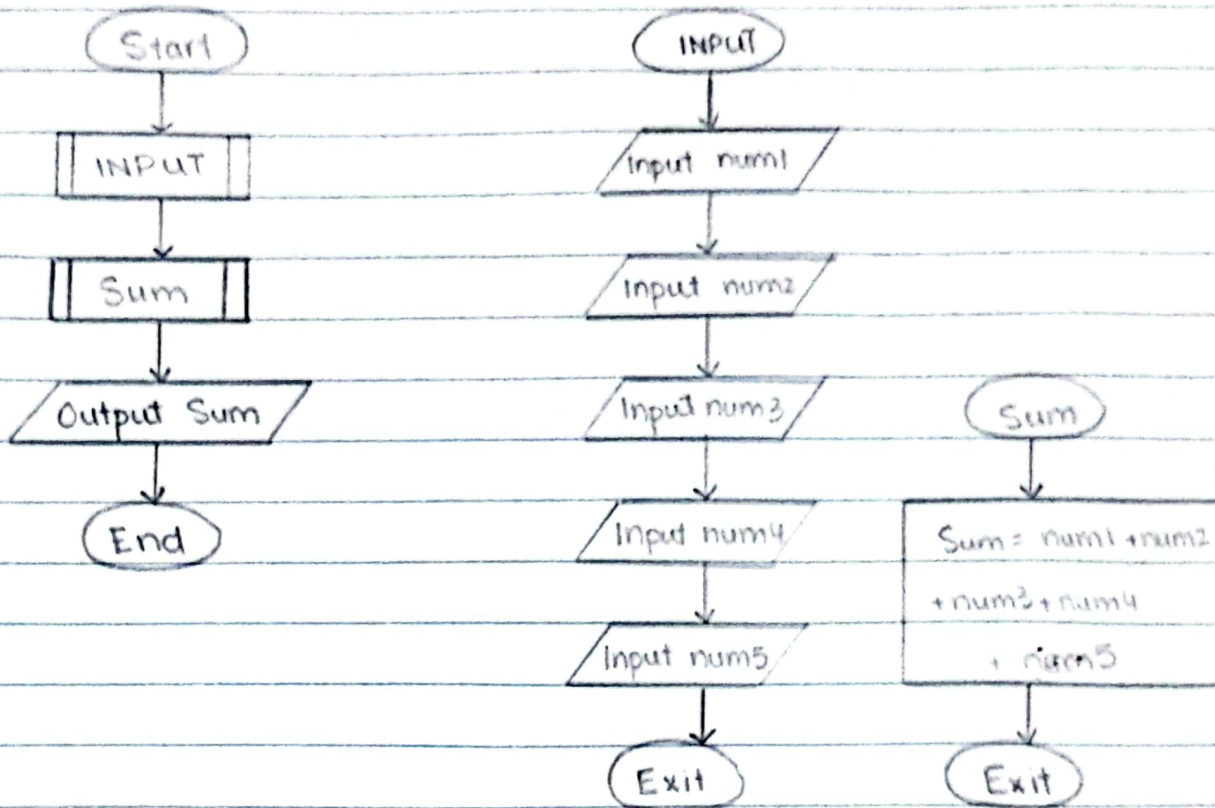 Start
INPUT
Sum
Output Sum
End
INPUT
Input num1
Input num2
Input num3
Input num4
Input num5
Exit
Sum
Sum = num1 + num2
+ num3 + num4
+ num5
Exit